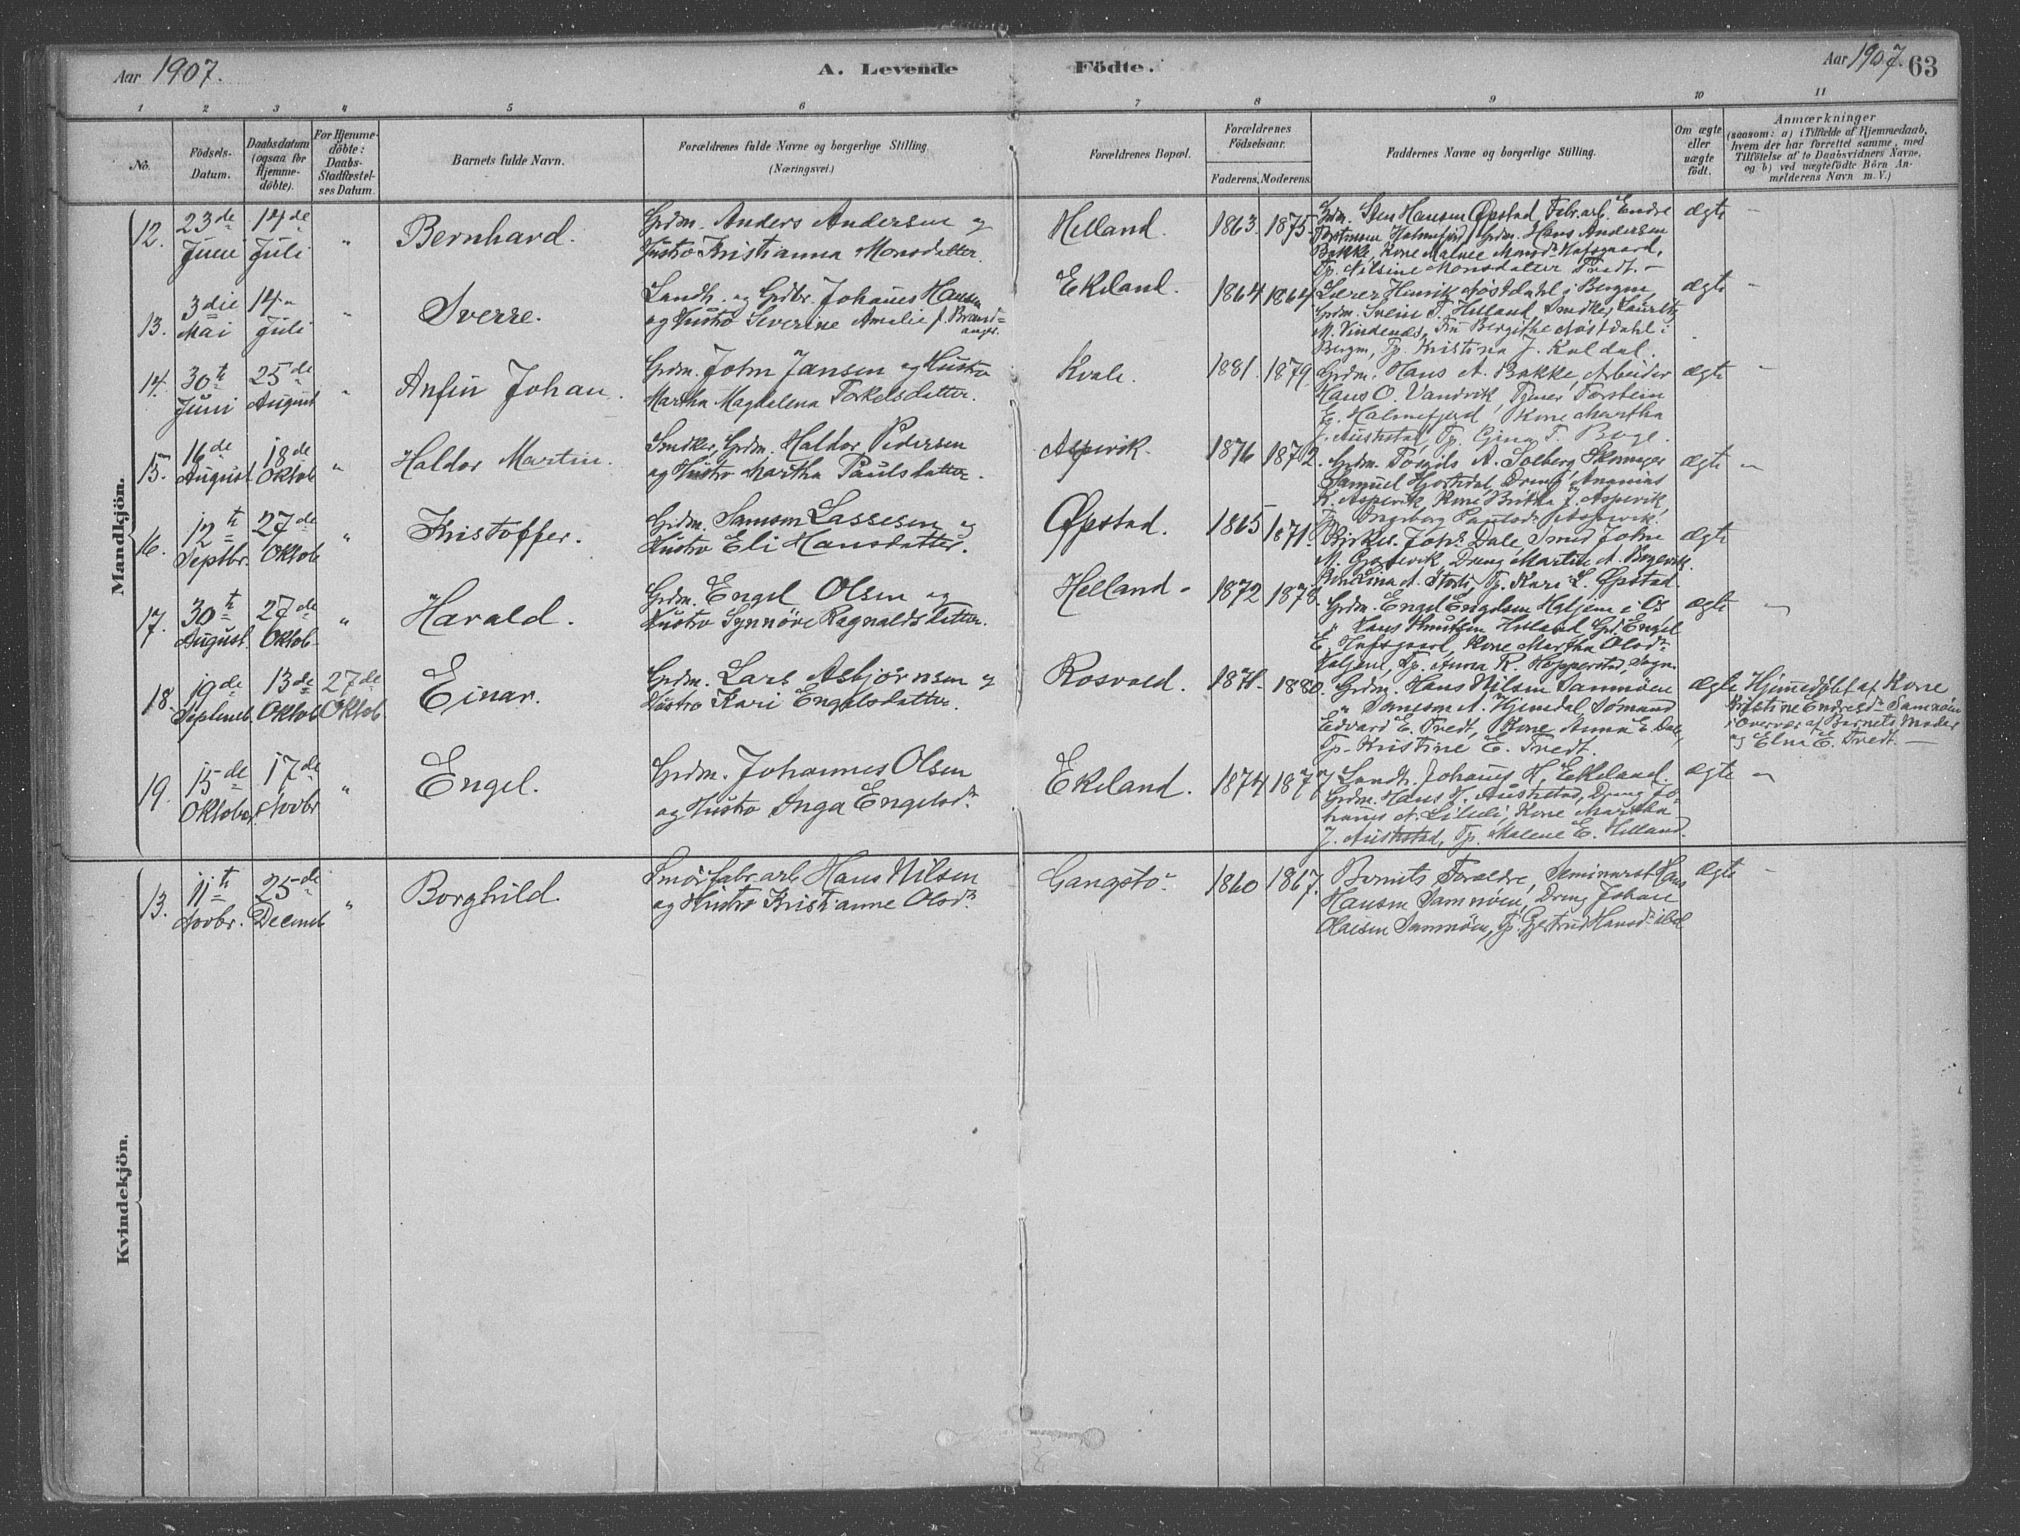 Aar 1907.
A. Levende Födte.
Aar 1907. 63
1 2 3 4 5 6 7 8 9 10 11
No.
Födsels-Datum.
Daabsdatum (ogsaa for Hjemme-döbte).
For Hjemme-döbte: Daabs-Stadfæstel-ses Datum.
Barnets fulde Navn.
Forældrenes fulde Navne og borgerlige Stilling (Næringsvei.)
Forældrenes Bopæl.
Forældrenes Födselsaar.
Faderens. Moderens.
Faddernes Navne og borgerlige Stilling.
Om ægte eller uægte født.
Anmærkninger
(saasom: a) i Tilfælde af Hjemmedaab, hvem der har forrettet samme, med Tilföielse af to Daabsvidners Navne, og b) ved uægtefödte Börn An-melderens Navn m. V.)
Mandkjön.
12. 23de Juni 14de Juli " Bernhard.
Grdm. Anders Andersen og
Hustro Kristianna Monsdatter.
Helland. 1863. 1875.
Grdm. Sten Hansen Øpstad, Fabr.arb. Endre
Holmefjord, Grdm. Hans Andersen
Bakke, Kone Malene Monsdr Hafsgaard,
Tp. Nilsine Monsdatter Tvedt. –
ægte –
13. 3die Mai 14" Juli " Sverre.
Landh. og Grdbr. Johannes Hansen
og Hustro Severine Amalie f. Brand-
anger.
Ekeland. 1864 1864
Lærer Henrik Nøstdahl i Bergen
Grdm. Svein T. Helland, Snedker Laurits
M. Vindenes, Frk. Bergithe Nøstdahl i
Bergen, Tp. Kristina J. Kaldal.
ægte –
14. 30te Juni 25de August " Anfin Johan.
Grdm. John Jansen og Hustro
Martha Magdalena Torkelsdatter.
Kvale. 1881. 1879.
Grdm. Hans A. Bakke, Arbeider
Hans O. Vandvik, Tjener Torstein
E. Holmefjord, Kone Martha
J. Aushstad, Tp. Gina T. Boge.
ægte –
15. 16de August 18de Oktob " Haldor Martin.
Snedker, Grdm. Haldor Pedersen
og Hustro Martha Paulsdatter.
Aspevik. 1876 1872.
Grdm. Torgils A. Solberg, Skomager
Samuel Hjortedal, Dreng Ananias
K. Aspevik, Kone Britha J. Aspevik,
Tp. Ingeborg Paulsdr Aspevik.
ægte "
16. 12te Septbr. 27de Oktob " Kristoffer.
Grdm. Samson Lassesen og
Hustro Eli Hansdatter.
Øpstad. 1865 1871.
Kirkes. Johs Dale, Smed John
M. Gjøsevik, Dreng Martin A. Bogevik,
Kone Lina A. Tp. Kari L. Øpstad
ægte
17. 30te August 27de Oktob " Harald.
Grdm. Engel Olsen og
Hustro Synnöve Ragnaldsdatter.
Helland – 1872 1878.
Grdm. Engel Engelsen Haljem i Os
" Hans Knutsen Helland, Gd. Engel
E. Hafsgaard, Kone Martha Olsdr
Haljem, Tp. Anna R. Hopperstad, Sogn.
ægte "
18. 19de Septemb 13de Oktob 27de Oktob Einar.
Grdm. Lars Asbjørnsen og
Hustro Kari Engelsdatter.
Rosvold. 1871. 1880.
Grdm. Hans Nilsen Samnøen
" Samson A. Hjemdal Sömand
Edvard E. Tvedt, Kone Anna E. Dale,
Tp. Kristine E. Tvedt.
ægte
Hjemmedøbt af Kone
Kristine Endresdr Samnøen
i Overvær af Barnets Moder
og Elna E. Tvedt. –
19. 15de Oktober 17de Novbr " Engel.
Grdm. Johannes Olsen
og Hustro Inga Engelsdr
Ekeland. 1874 1877
Landh. Johannes H. Ekeland.
Grdm. Hans H. Aushstad, Dreng Jo-
hannes A. Kone Martha
J. Aushstad, Tp. Malene E. Helland.
ægte "
Kvindekjön.
13. 11te Novbr. 25de Decemb " Borghild.
Smörfabr.arb. Hans Nilsen
og Hustro Kristianne Olsdr
Gangstö – 1860 1867.
Barnets Forældre, Seminarist Hans
Hansen Samnøen, Dreng Johan
Olaisen Samnøen, Tp. Gjertrud Hansdr ibd
ægte –